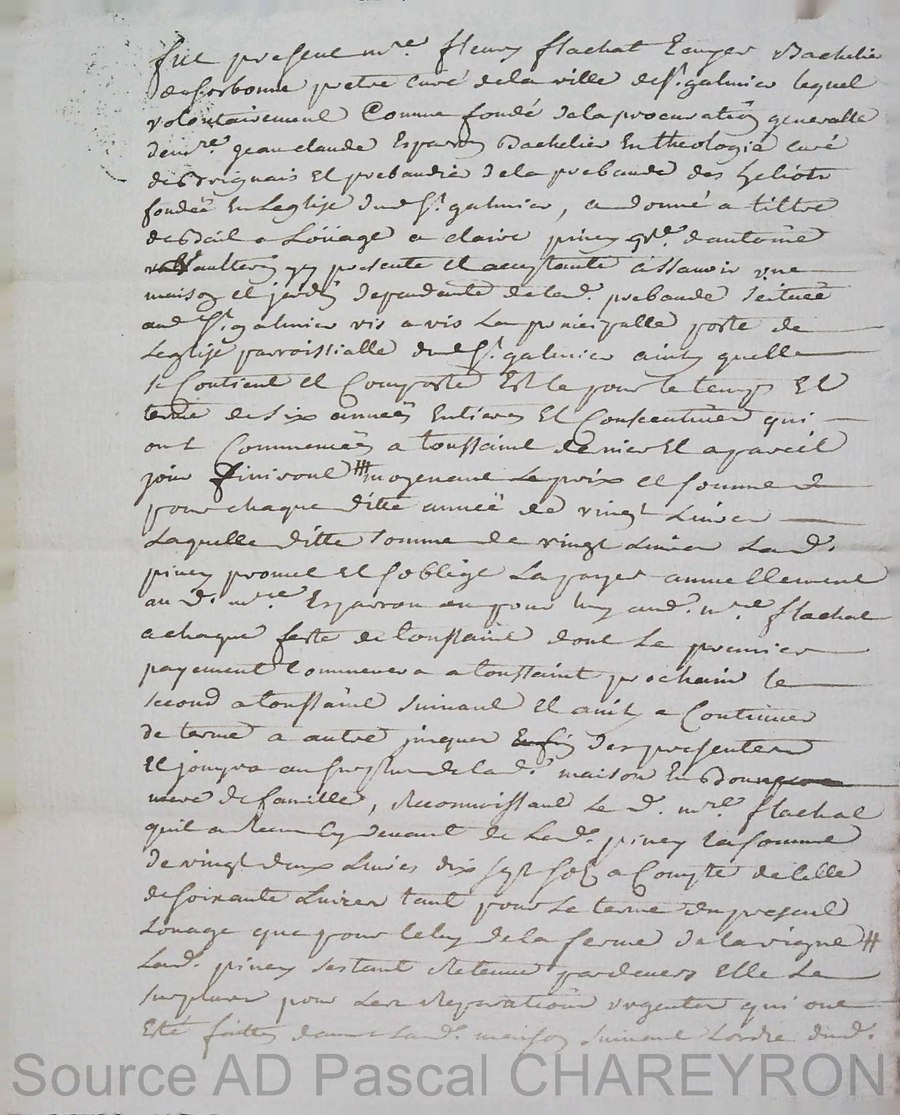 fut present mre fleury flachat Ecuyer Bachelier
de sorbonne pretre curé de la ville de st. galmier lequel
volontairement Comme fondé de la procuration generalle
de mre. jean claude Esparron Bachelier En theologie curé
de Brignais Et prebandié de la prebande des heliots
fondeé En Leglise dud st. galmier, a donné a tiltre
de Bail a Loüage a claire piney antoine
cy presente et acceptante assavoir une
maison et jardin dependante de lad. prebande scituée
aud st. galmier vis a vis La principalle porte de
Leglise parroissialle dud st. galmier ainsy quelle
se Contient et Comporte Est ce pour le temps Et
terme de six anneés Entieres Et Consecutives qui
ont Commencées a toussaint dernier Et a pareil
jour finiront moyenant Le prix et somme
pour chaque ditte anneé de vingt Livres
Laquelle ditte somme de vingt Livres Lad.
piney promet Et soblige La payer annuellement
au d. mre Esparron ou pour luy aud. mre flachat
a chaque feste de toussaint dont Le premier
payement Commencera a toussaint prochain le
second a toussaint suivant Et ainsy a Continuer
de terme a autre jusques des presentes
Et jouyra au surplus de lad. maison En Bonne
mere de famille, Reconnoissant Le d. mre. flachat
quil a Receu Cy devant de Lad. piney La somme
de vingt deux Livres dix sept sols a Compte de Celle
de soixante Livres tant pour Le terme du present
Louage que pour Celuy de la ferme de la vigne
Lad. piney sestant Retenue pardevers Elle Le
surplus pour Les Reparations urgentes qui ont
Eté faittes dans Lad. maison suivant Lordre dud.
Source AD Pascal CHAREYRON